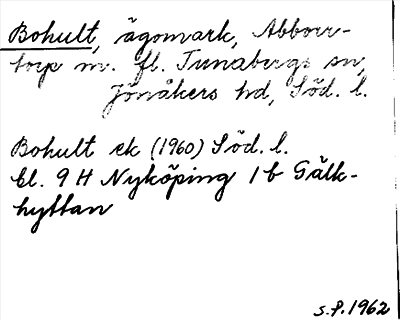 Bohult, ägomark, Abborr-
torp m. fl. Tunabergs sn,
Jönåkers hd, Söd. l.
Bohult ek (1960) Söd. l.
bl. 9 H Nyköping 1 b Gälk-
hyttan
S.P. 1962